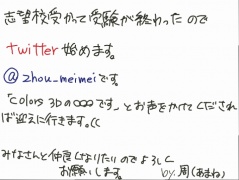 志望校受かって受験が終わったので
twitter始めます。
@zhou_meimeiです。
「Colors 3Dの○○○です」とお声をかけてくだされ
ば迎えに行きます。((
みなさんと仲良くなりたいのでよろしく
お願いします。
by.周(あまね)